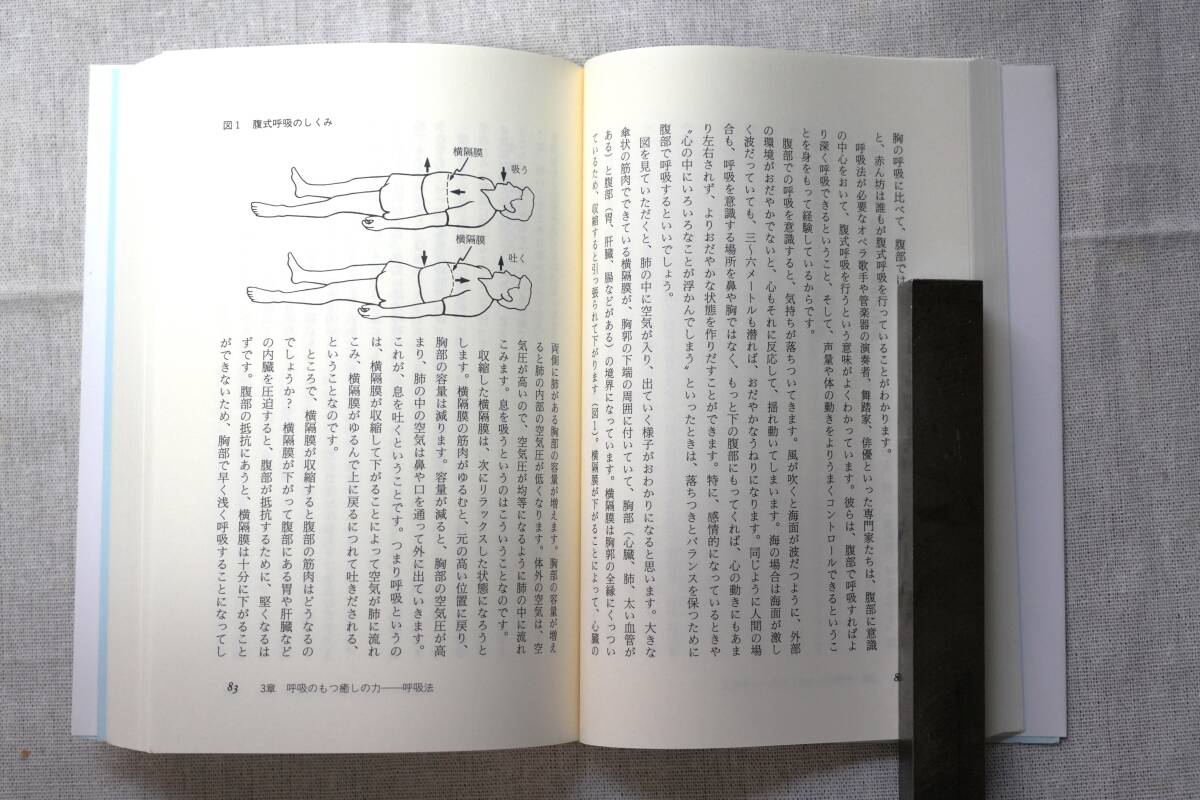 胸の呼吸に比べて、腹部では
と、赤ん坊は誰もが腹式呼吸を行っていることがわかります。
呼吸法が必要なオペラ歌手や管楽器の演奏者、舞踏家、俳優といった専門家たちは、腹部に意識
の中心をおいて、腹式呼吸を行うという意味がよくわかっています。彼らは、腹部で呼吸すればよ
り深く呼吸できるということ、そして、声量や体の動きをよりうまくコントロールできるというこ
とを身をもって経験しているからです。
腹部での呼吸を意識すると、気持ちが落ちついてきます。風が吹くと海面が波だつように、外部
の環境がおだやかでないと、心もそれに反応して、揺れ動いてしまいます。海の場合は海面が激し
く波だっていても、三〜六メートルも潜れば、おだやかなうねりになります。同じように人間の場
合も、呼吸を意識する場所を鼻や胸ではなく、もっと下の腹部にもってくれば、心の動きにもあま
り左右されず、よりおだやかな状態を作りだすことができます。特に、感情的になっているときや
〝心の中にいろいろなことが浮かんでしまう〟といったときは、落ちつきとバランスを保つために
腹部で呼吸するといいでしょう。
図を見ていただくと、肺の中に空気が入り、出ていく様子がおわかりになると思います。大きな
傘状の筋肉でできている横隔膜が、胸郭の下端の周囲に付いていて、胸部（心臓、肺、太い血管が
ある）と腹部（胃、肝臓、腸などがある）の境界になっています。横隔膜は胸郭の全縁にくっつい
ているため、収縮すると引っ張られて下がります（図1）。横隔膜が下がることによって、心臓の
図1 腹式呼吸のしくみ
横隔膜
吸う
横隔膜
吐く
両側に肺がある胸部の容量が増えます。胸部の容量が増え
ると肺の内部の空気圧が低くなります。体外の空気は、空
気圧が高いので、空気圧が均等になるように肺の中に流れ
こみます。息を吸うというのはこういうことなのです。
収縮した横隔膜は、次にリラックスした状態になろうと
します。横隔膜の筋肉がゆるむと、元の高い位置に戻り、
胸部の容量は減ります。容量が減ると、胸部の空気圧が高
まり、肺の中の空気は鼻や口を通って外に出ていきます。
これが、息を吐くということです。つまり呼吸というの
は、横隔膜が収縮して下がることによって空気が肺に流れ
こみ、横隔膜がゆるんで上に戻るにつれて吐きだされる、
ということなのです。
ところで、横隔膜が収縮すると腹部の筋肉はどうなるの
でしょうか？ 横隔膜が下がって腹部にある胃や肝臓など
の内臓を圧迫すると、腹部が抵抗するために、堅くなるは
ずです。腹部の抵抗にあうと、横隔膜は十分に下がること
ができないため、胸部で早く浅く呼吸することになってし
83 3章 呼吸のもつ癒しの力――呼吸法